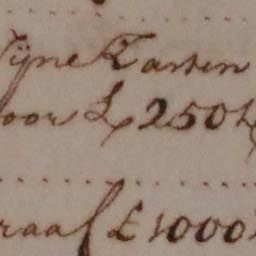 Zijne Karsen
oor £ 250
raaf £ 1000